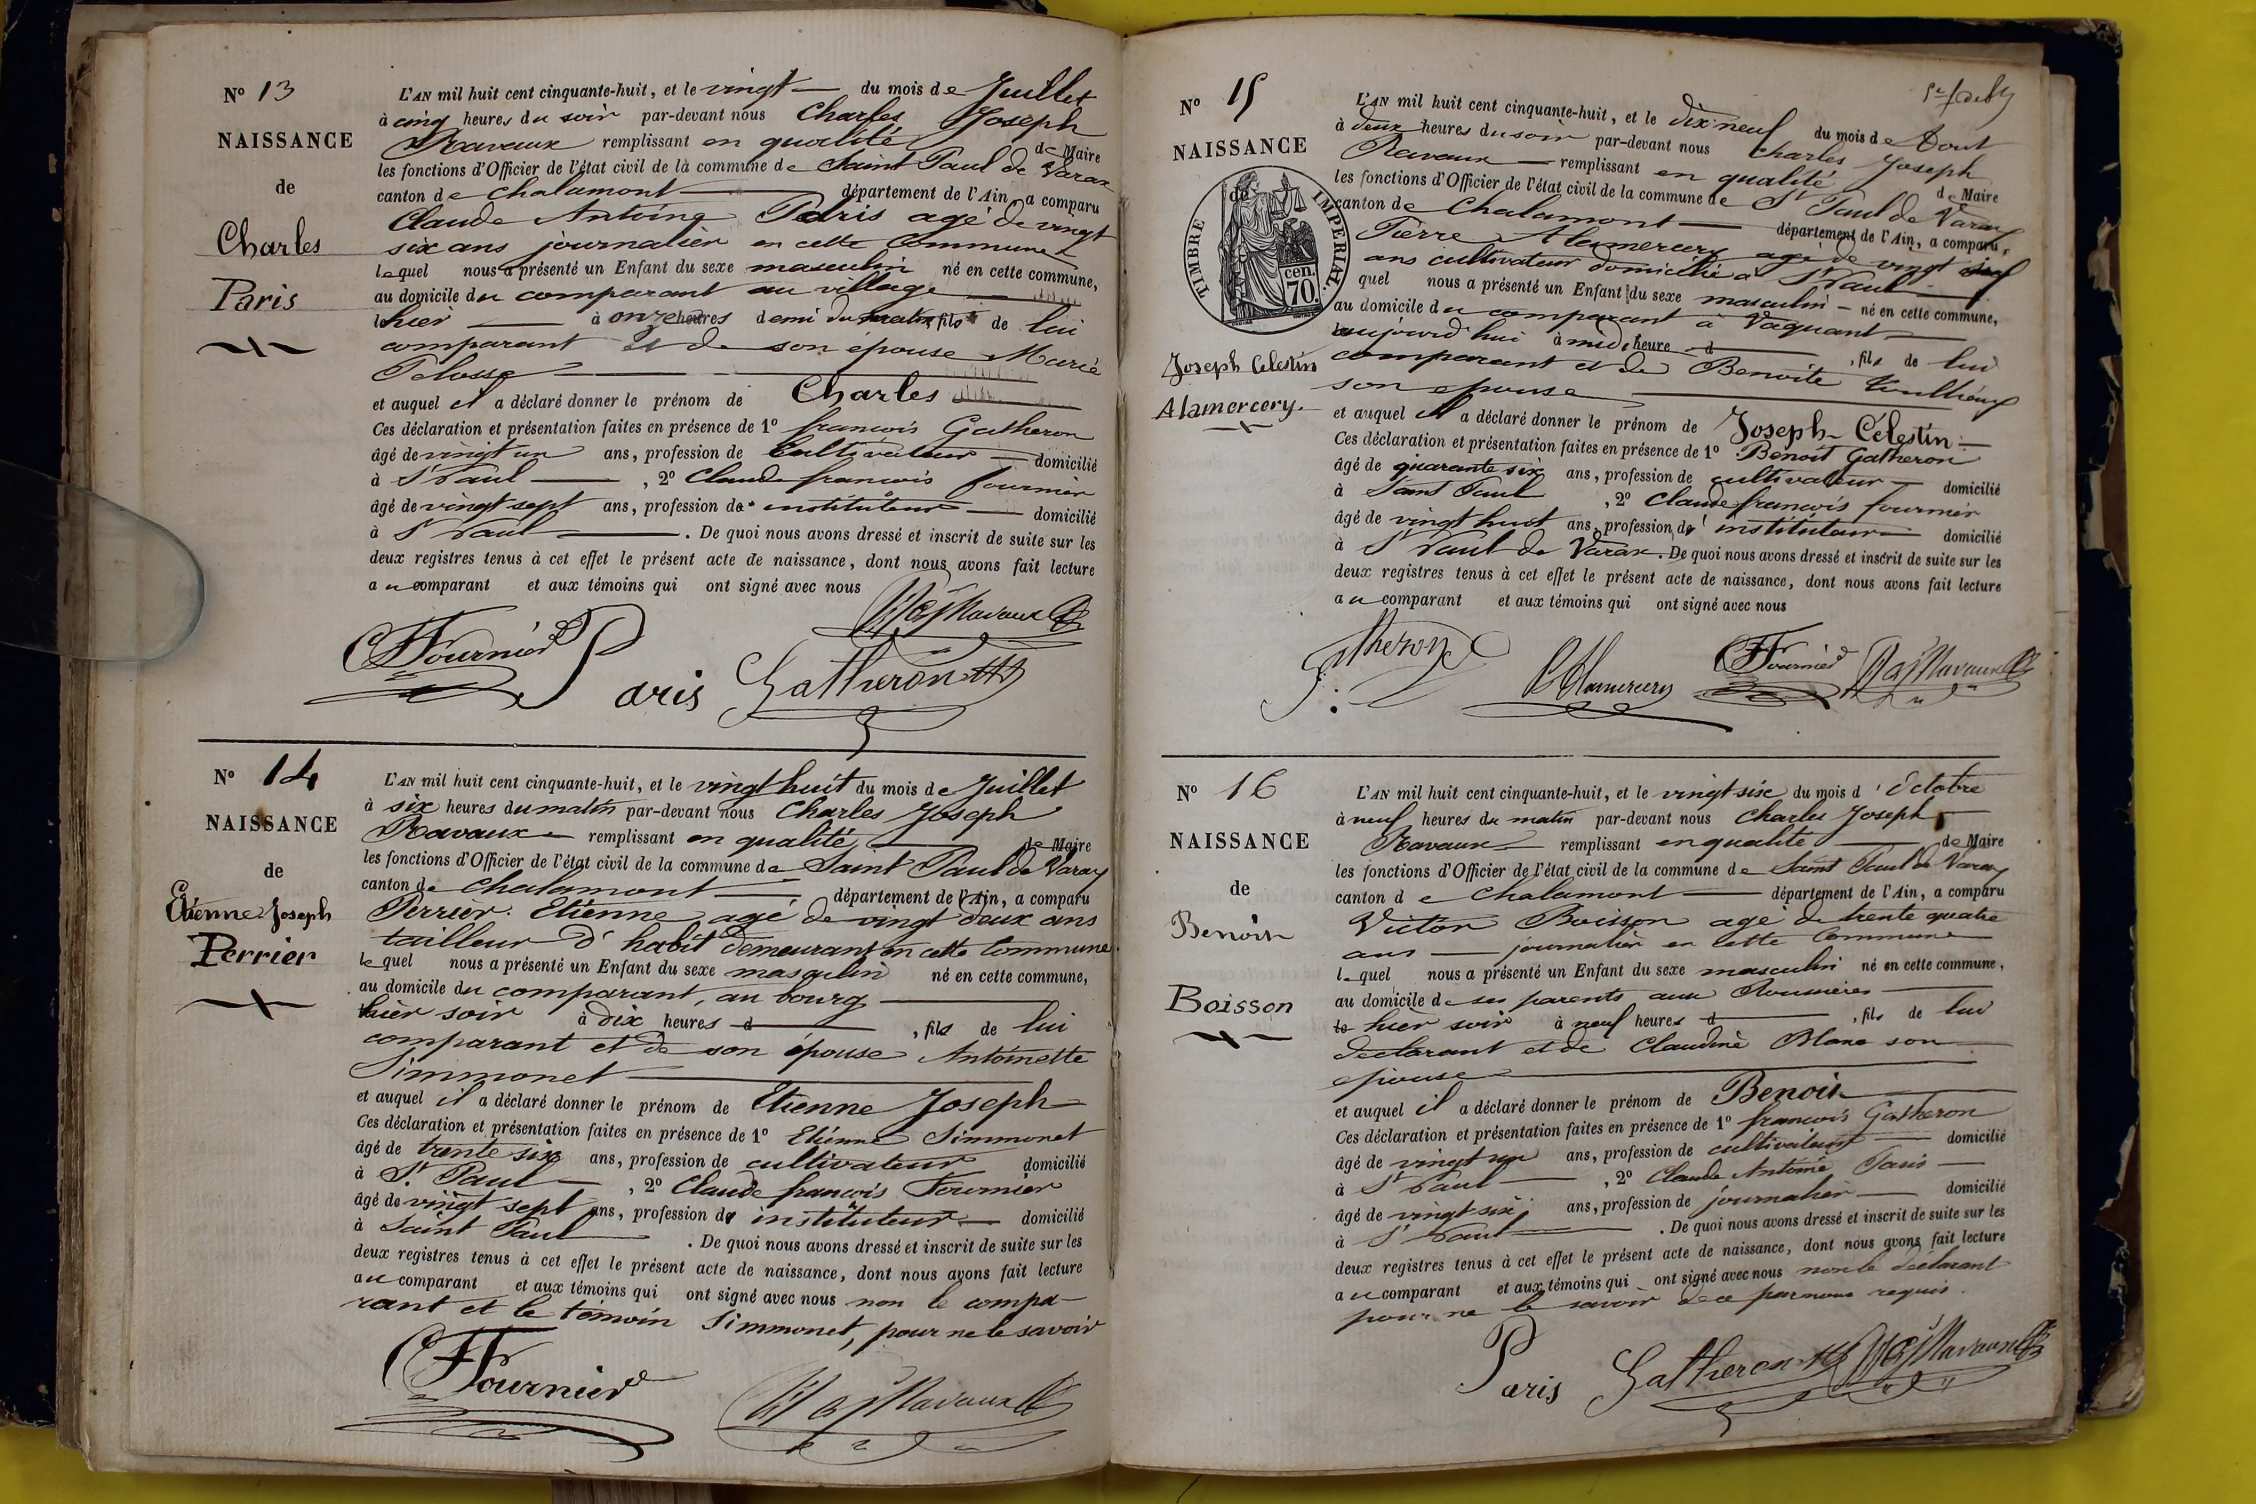 N° 13
NAISSANCE
de
Charles
Paris
L'AN mil huit cent cinquante-huit, et le vingt du mois de Juillet
à cinq heures du soir par-devant nous Charles Joseph
Ravaux remplissant en qualité de Maire
les fonctions d'Officier de l'état civil de la commune de Saint Paul de Varax
canton de Chalamont département de l'Ain, a comparu
Claude Antoine Paris agé de vingt
six ans journalier en cette Commune
lequel nous a présenté un Enfant du sexe masculin né en cette commune,
au domicile du comparant au village
hier à onze heures demi du matin, fils de lui
comparant et de son epouse Marie
Pelosse
et auquel il a déclaré donner le prénom de Charles
Ces déclaration et présentation faites en présence de 1° francois Gatheron
âgé de vingt un ans, profession de Cultivateur domicilié
à St Paul, 2° Claude francois fournier
âgé de vingt sept ans, profession de instituteur domicilié
à St Paul. De quoi nous avons dressé et inscrit de suite sur les
deux registres tenus à cet effet le présent acte de naissance, dont nous avons fait lecture
au comparant et aux témoins qui ont signé avec nous
Ravaux
Fournier Paris Gatheron
N° 14
NAISSANCE
de
Etienne Joseph
Perrier
L'AN mil huit cent cinquante-huit, et le vingt huit du mois de Juillet
à six heures du matin par-devant nous Charles Joseph
Ravaux remplissant en qualité de Maire
les fonctions d'Officier de l'état civil de la commune de Saint Paul de Varax
canton de Chalamont département de l'Ain, a comparu
Perrier Etienne, agé de vingt deux ans
tailleur d'habit demeurant en cette Commune
lequel nous a présenté un Enfant du sexe masculin né en cette commune,
au domicile du comparant, au bourg
hier soir à dix heures d, fils de lui
comparant et de son épouse Antoinette
Simmonet
et auquel il a déclaré donner le prénom de Etienne Joseph
Ces déclaration et présentation faites en présence de 1° Etienne Simmonet
âgé de trente six ans, profession de cultivateur domicilié
à St Paul, 2° Claude francois Fournier
âgé de vingt sept ans, profession de instituteur domicilié
à Saint Paul. De quoi nous avons dressé et inscrit de suite sur les
deux registres tenus à cet effet le présent acte de naissance, dont nous avons fait lecture
au comparant et aux témoins qui ont signé avec nous non le compa-
rant et le témoin Simmonet, pour ne le savoir
Fournier Ravaux
N° 15
NAISSANCE
de
TIMBRE IMPERIAL.
70 cen.
Joseph Celestin
Alamercery
L'AN mil huit cent cinquante-huit, et le dix neuf du mois de Aout
à deux heures du soir par-devant nous Charles Joseph
Ravaux remplissant en qualité de Maire
les fonctions d'Officier de l'état civil de la commune de St Paul de Varax
canton de Chalamont département de l'Ain, a comparu,
Pierre Alamercery agé de vingt neuf
ans cultivateur domicilié à St Paul
quel nous a présenté un Enfant du sexe masculin né en cette commune,
au domicile du comparant à Vaquant
aujourd'hui à midi heure d, fils de lui
comparant et de Benoite
son epouse
et auquel il a déclaré donner le prénom de Joseph-Célestin
Ces déclaration et présentation faites en présence de 1° Benoit Gatheron
âgé de quarante six ans, profession de cultivateur domicilié
à Saint Paul, 2° Claude francois fournier
âgé de vingt huit ans, profession de instituteur domicilié
à St Paul de Varax. De quoi nous avons dressé et inscrit de suite sur les
deux registres tenus à cet effet le présent acte de naissance, dont nous avons fait lecture
au comparant et aux témoins qui ont signé avec nous
Gatheron Alamercery Fournier Ravaux
N° 16
NAISSANCE
de
Benoit
Boisson
L'AN mil huit cent cinquante-huit, et le vingt six du mois d'Octobre
à neuf heures du matin par-devant nous Charles Joseph
Ravaux remplissant en qualité de Maire
les fonctions d'Officier de l'état civil de la commune de Saint Paul de Varax
canton de Chalamont département de l'Ain, a comparu
Victor Boisson agé de trente quatre
ans journalier en cette Commune
lequel nous a présenté un Enfant du sexe masculin né en cette commune,
au domicile de ses parents aux
le hier soir à neuf heures d, fils de lui
declarant et de Claudine Blanc son
epouse
et auquel il a déclaré donner le prénom de Benoit
Ces déclaration et présentation faites en présence de 1° francois Gatheron
âgé de vingt un ans, profession de cultivateur domicilié
à St Paul, 2° Claude Antoine Paris
âgé de vingt six ans, profession de journalier domicilié
à St Paul. De quoi nous avons dressé et inscrit de suite sur les
deux registres tenus à cet effet le présent acte de naissance, dont nous avons fait lecture
au comparant et aux témoins qui ont signé avec nous non le déclarant
pour ne le savoir de ce par nous requis.
Paris Gatheron Ravaux